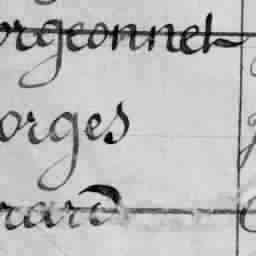 orgeonnet
orges
rard